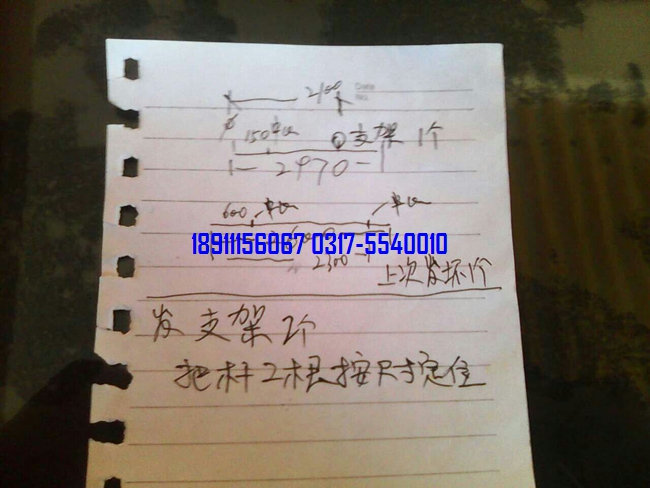 2100
Date
No.
150 中心 支架 1个
2970
600 中心 中心
18911156067 0317-5540010
2300
上次发坏1个
发支架2个
把杆2根按尺寸定位